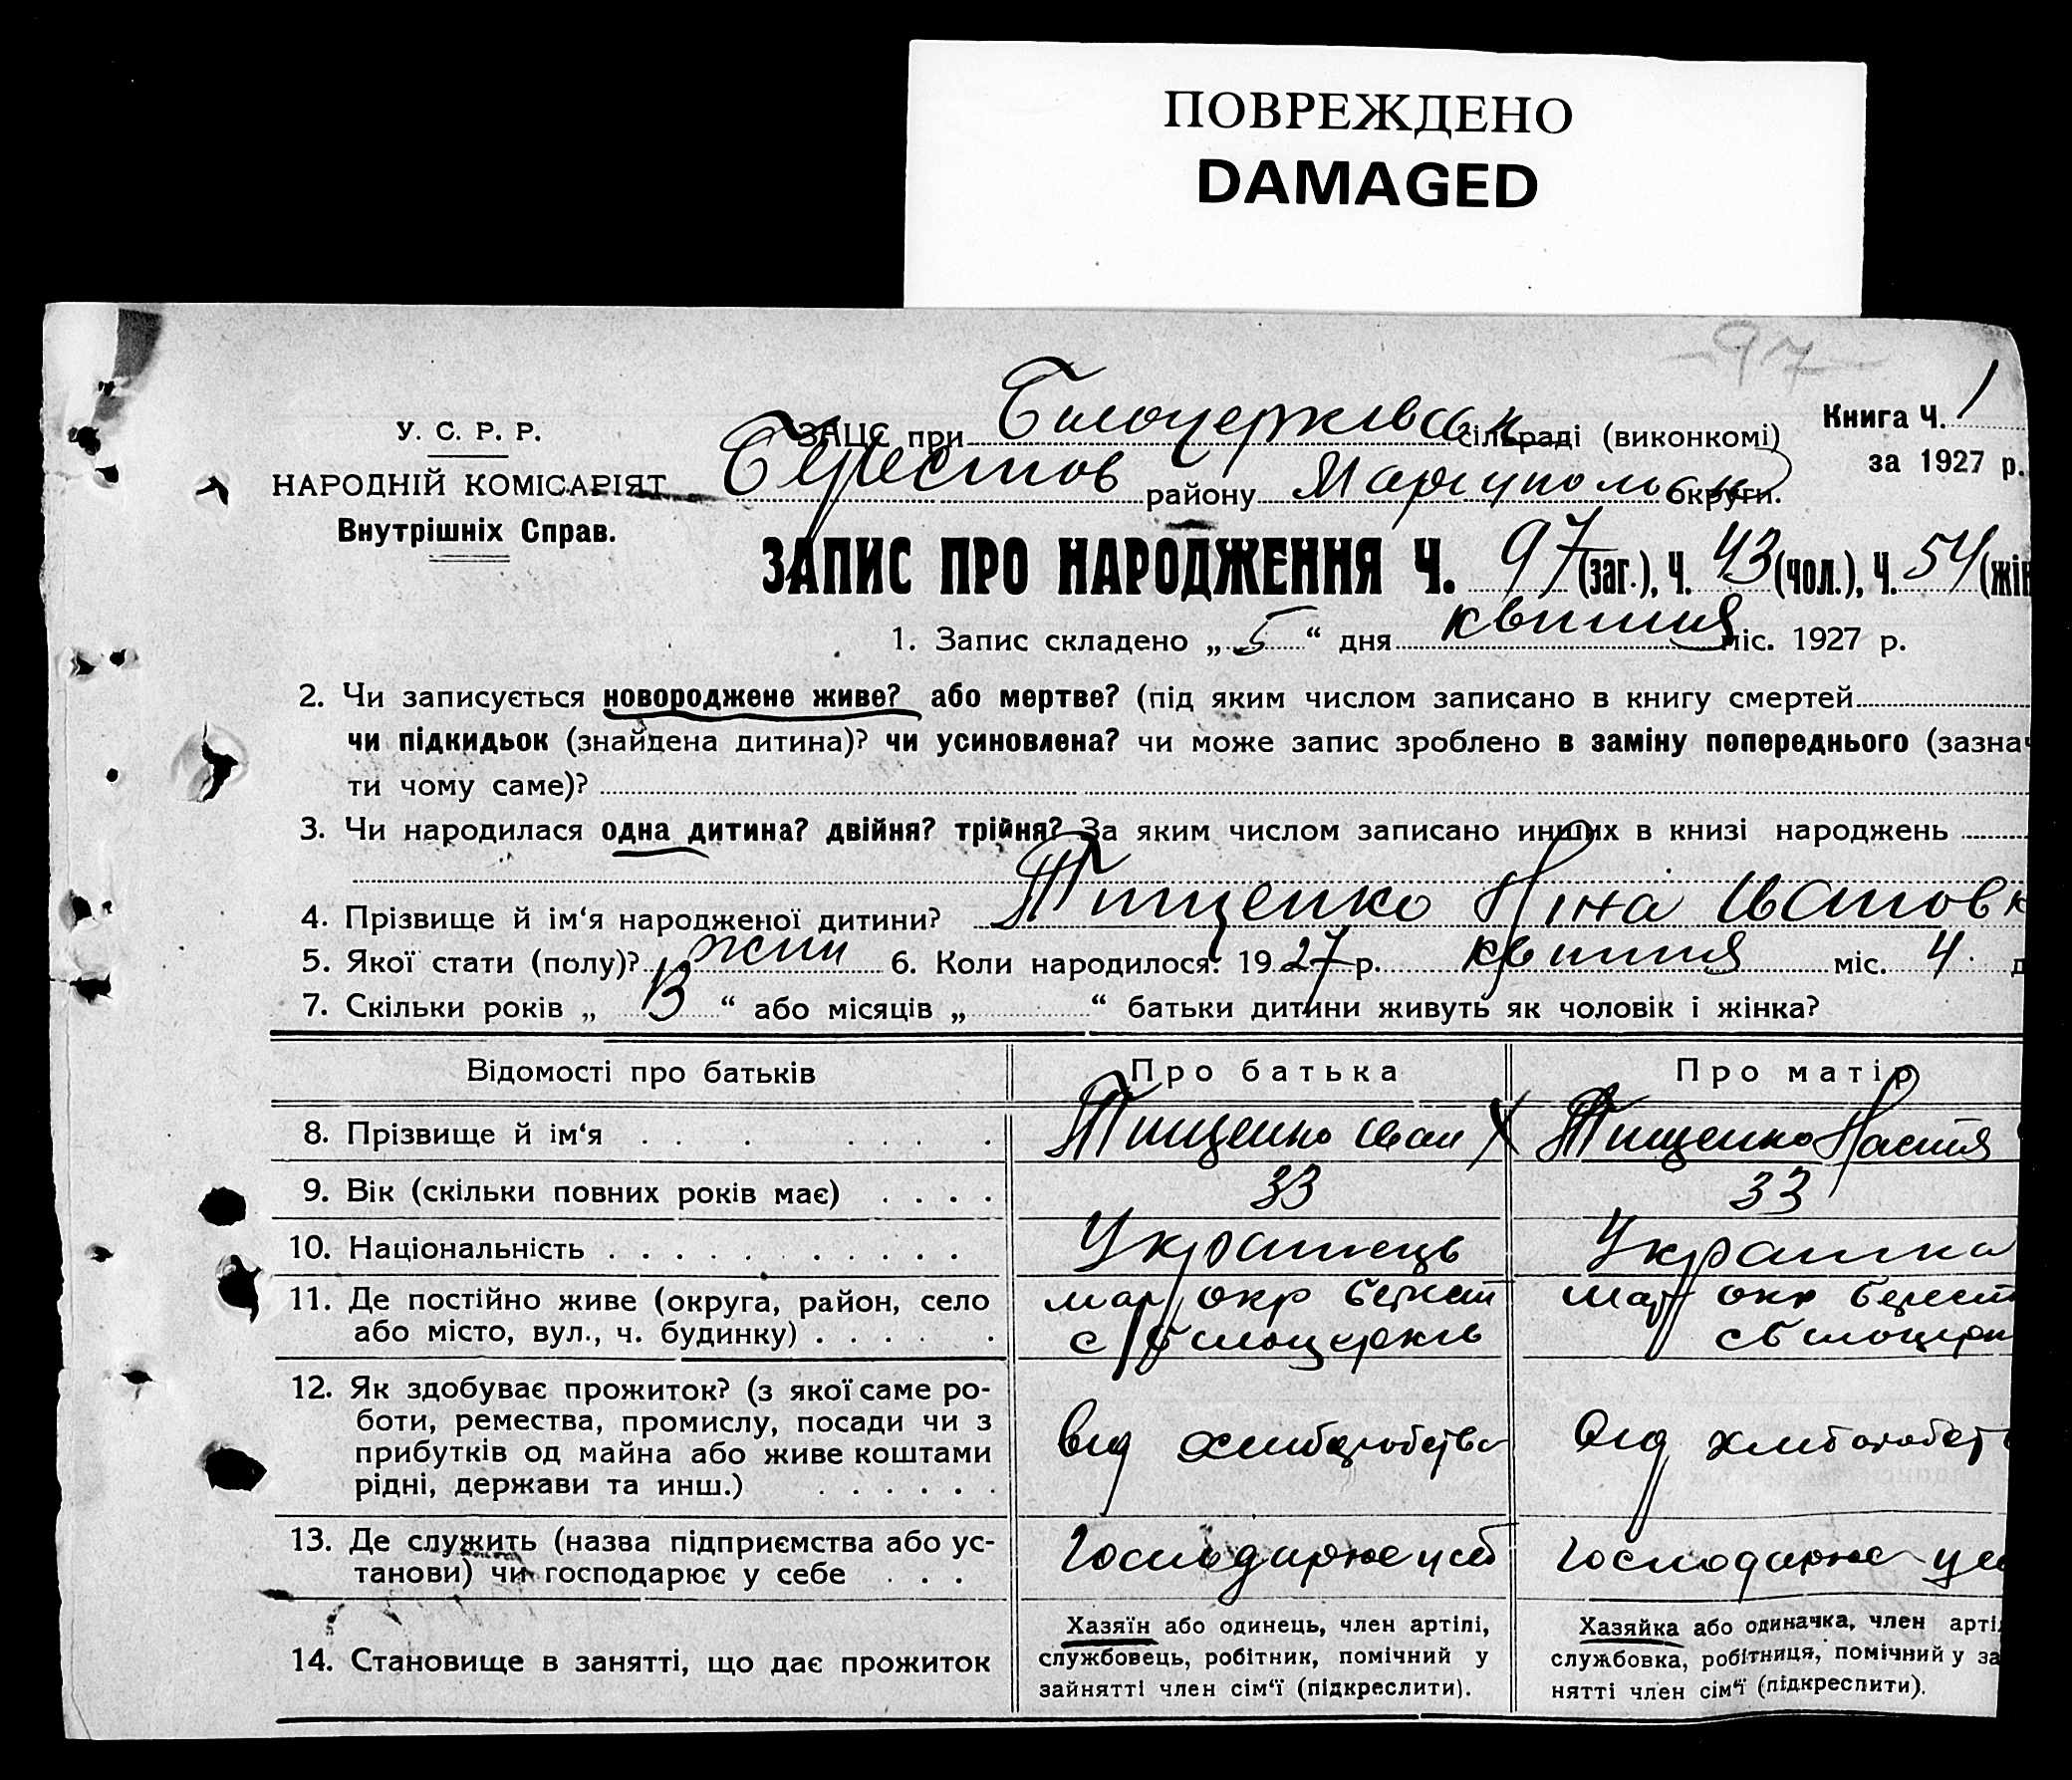 ПОВРЕЖДЕНО
DAMAGED
97
У. С. Р. Р.
НАРОДНІЙ КОМІСАРІЯТ
Внутрішніх Справ.
ЗАЦС при Билоцерківськ сільраді (виконкомі)
Берестов району Маріупольск округи.
Книга Ч. 1
за 1927 р.
ЗАПИС ПРО НАРОДЖЕННЯ Ч. 97 (заг.), Ч. 43 (чол.), Ч. 54 (жін
1. Запис складено „ 5 “ дня квитня міс. 1927 р.
2. Чи записується новороджене живе? або мертве? (під яким числом записано в книгу смертей
чи підкидьок (знайдена дитина)? чи усиновлена? чи може запис зроблено в заміну попереднього (зазнач
ти чому саме)?
3. Чи народилася одна дитина? двійня? трійня? За яким числом записано инших в книзі народжень
4. Прізвище й ім‘я народженої дитини? Тищенко Ніна Ивановк
5. Якої стати (полу)? жин 6. Коли народилося: 1927 р. квитня міс. 4. д
7. Скільки років „ 13 “ або місяців „ “ батьки дитини живуть як чоловік і жінка?
Відомості про батьків Про батька Про матір
8. Прізвище й ім‘я Тищенко Иван Тищенко Настя
9. Вік (скільки повних років має) 33 33
10. Національність Украинець Украинка
11. Де постійно живе (округа, район, село мар окр Берест мар окр Берест
або місто, вул., ч. будинку) с Билоцерків с Билоцерк
12. Як здобуває прожиток? (з якої саме ро-
боти, ремества, промислу, посади чи з
прибутків од майна або живе коштами
рідні, держави та инш.)
від хлиборобства від хлиборобст
13. Де служить (назва підприємства або ус-
танови) чи господарює у себе
Господарює у себ Господарює у се
14. Становище в занятті, що дає прожиток
Хазяїн або одинець, член артілі,
службовець, робітник, помічний у
зайнятті член сім‘ї (підкреслити).
Хазяйка або одиначка, член арті
службовка, робітниця, помічний у за
нятті член сім‘ї (підкреслити).